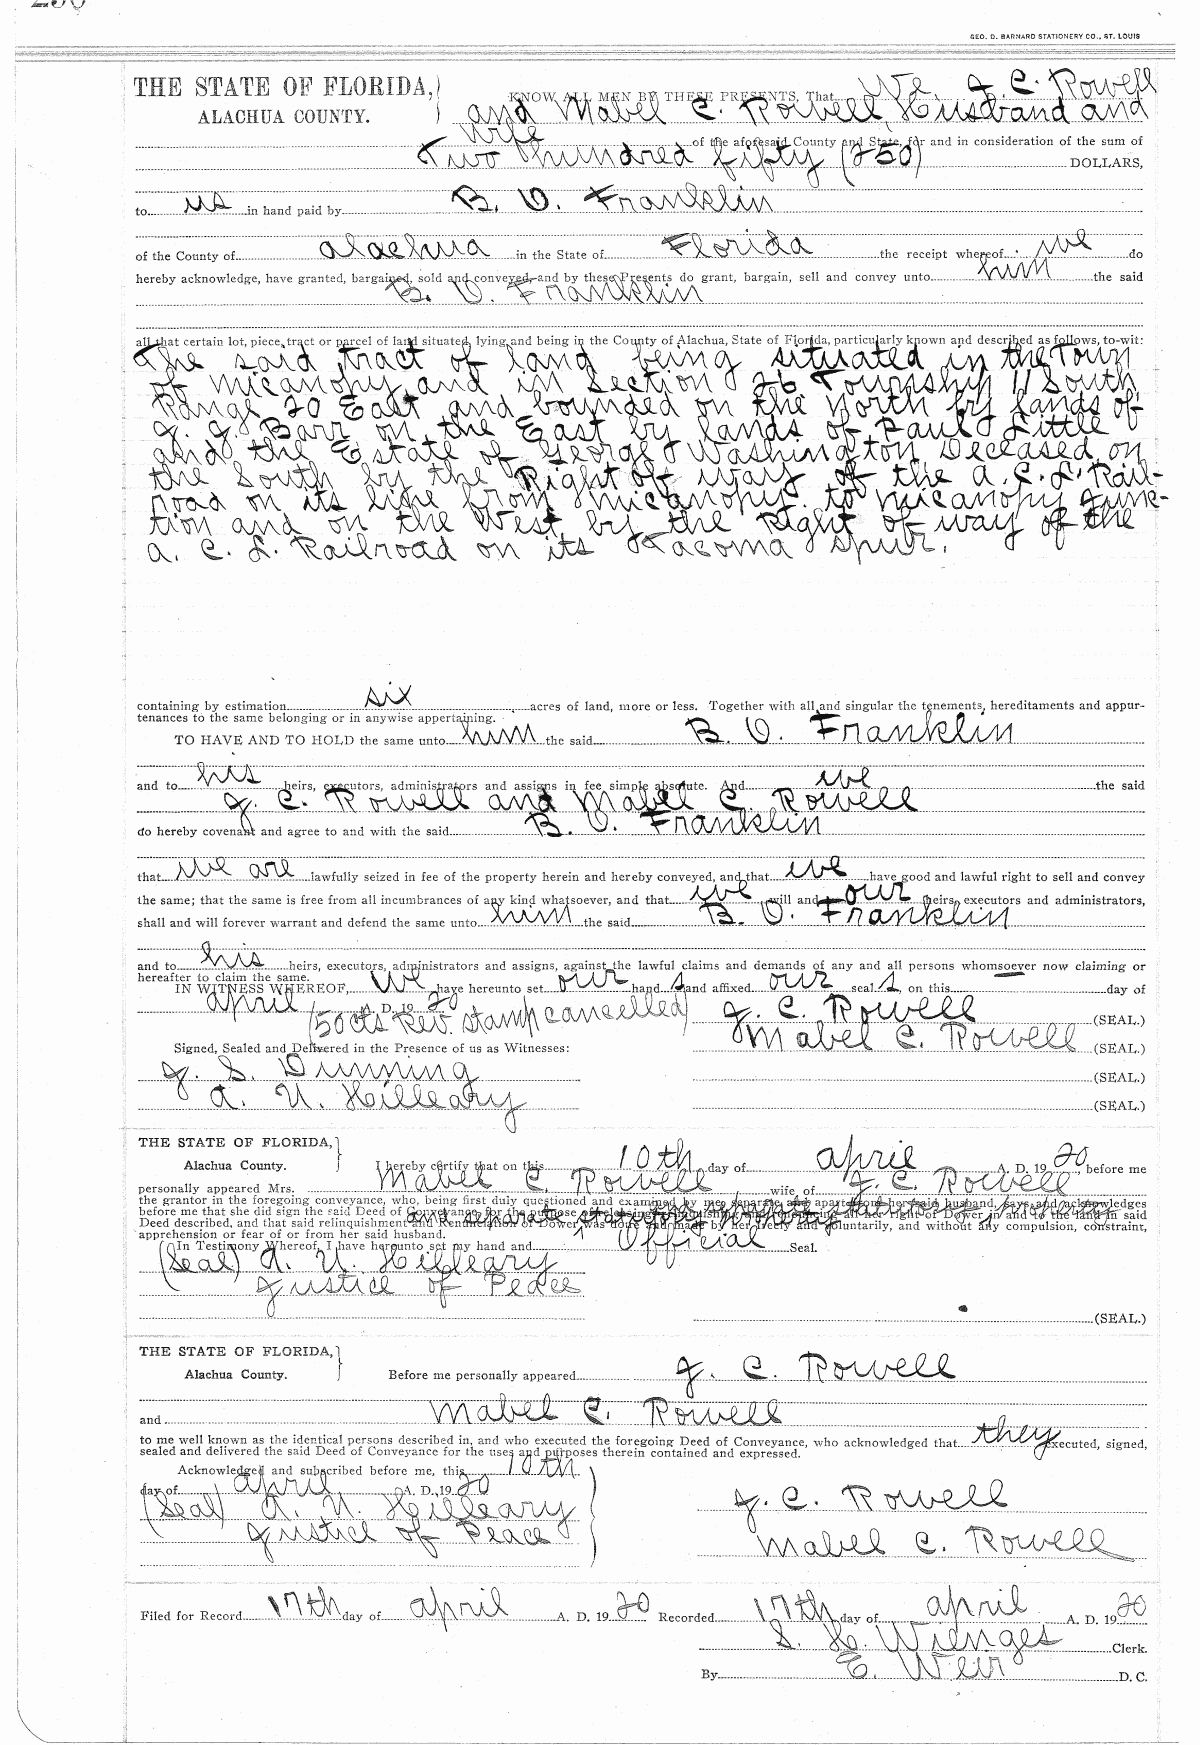 GEO. D. BARNARD STATIONERY CO., ST. LOUIS
THE STATE OF FLORIDA,
ALACHUA COUNTY.
KNOW ALL MEN BY THESE PRESENTS, That We, J. C. Rowell
and Mabel C. Rowell, Husband and
Wife of the aforesaid County and State, for and in consideration of the sum of
Two Hundred fifty (250) DOLLARS,
to us in hand paid by B. O. Franklin
of the County of Alachua in the State of Florida the receipt whereof we do
hereby acknowledge, have granted, bargained, sold and conveyed, and by these Presents do grant, bargain, sell and convey unto him the said
B. O. Franklin
all that certain lot, piece, tract or parcel of land situated, lying and being in the County of Alachua, State of Florida, particularly known and described as follows, to-wit:
The said tract of land being situated in the Town
of Micanopy and in Section 26 Township 11 South
Range 20 East and bounded on the North by lands of
J. J. Barr on the East by lands of Paul Little
and the Estate of George Washington Deceased, on
the South by the Right of way of the A. C. L. Rail-
road on its line from Micanopy to Micanopy Junc-
tion and on the West by the Right of way of the
A. C. L. Railroad on its Tacoma Spur.
containing by estimation six acres of land, more or less. Together with all and singular the tenements, hereditaments and appur-
tenances to the same belonging or in anywise appertaining.
TO HAVE AND TO HOLD the same unto him the said B. O. Franklin
and to his heirs, executors, administrators and assigns in fee simple absolute. And we the said
J. C. Rowell and Mabel C. Rowell
do hereby covenant and agree to and with the said B. O. Franklin
that we are lawfully seized in fee of the property herein and hereby conveyed, and that we have good and lawful right to sell and convey
the same; that the same is free from all incumbrances of any kind whatsoever, and that we will and our heirs, executors and administrators,
shall and will forever warrant and defend the same unto him the said B. O. Franklin
and to his heirs, executors, administrators and assigns, against the lawful claims and demands of any and all persons whomsoever now claiming or
hereafter to claim the same.
IN WITNESS WHEREOF, We have hereunto set our hand s and affixed our seal s, on this day of
April A. D. 19 20
(50cts Rev. stamp cancelled) J. C. Rowell (SEAL.)
Mabel C. Rowell (SEAL.)
Signed, Sealed and Delivered in the Presence of us as Witnesses:
J. S. Dinning (SEAL.)
A. U. Hilleary (SEAL.)
THE STATE OF FLORIDA,
Alachua County.
I hereby certify that on this 10th day of April A. D. 19 20, before me
personally appeared Mrs. Mabel C. Rowell wife of J. C. Rowell
the grantor in the foregoing conveyance, who, being first duly questioned and examined by me separate and apart from her said husband, acknowledges
before me that she did sign the said Deed of Conveyance for the purpose of relinquishing and renouncing all her right of Dower in and to the land in said
Deed described, and that said relinquishment and Renunciation of Dower was made by her freely and voluntarily, and without any compulsion, constraint,
apprehension or fear of or from her said husband.
In Testimony Whereof, I have hereunto set my hand and Official Seal.
(Seal) A. U. Hilleary
Justice of Peace
(SEAL.)
THE STATE OF FLORIDA,
Alachua County.
Before me personally appeared J. C. Rowell
and Mabel C. Rowell
to me well known as the identical persons described in, and who executed the foregoing Deed of Conveyance, who acknowledged that they executed, signed,
sealed and delivered the said Deed of Conveyance for the uses and purposes therein contained and expressed.
Acknowledged and subscribed before me, this 10th
day of April A. D., 19 20
(Seal) A. U. Hilleary J. C. Rowell
Justice of Peace Mabel C. Rowell
Filed for Record 17th day of April A. D. 19 20 Recorded 17th day of April A. D. 19 20
S. H. Wienges Clerk.
By E. Weir D. C.